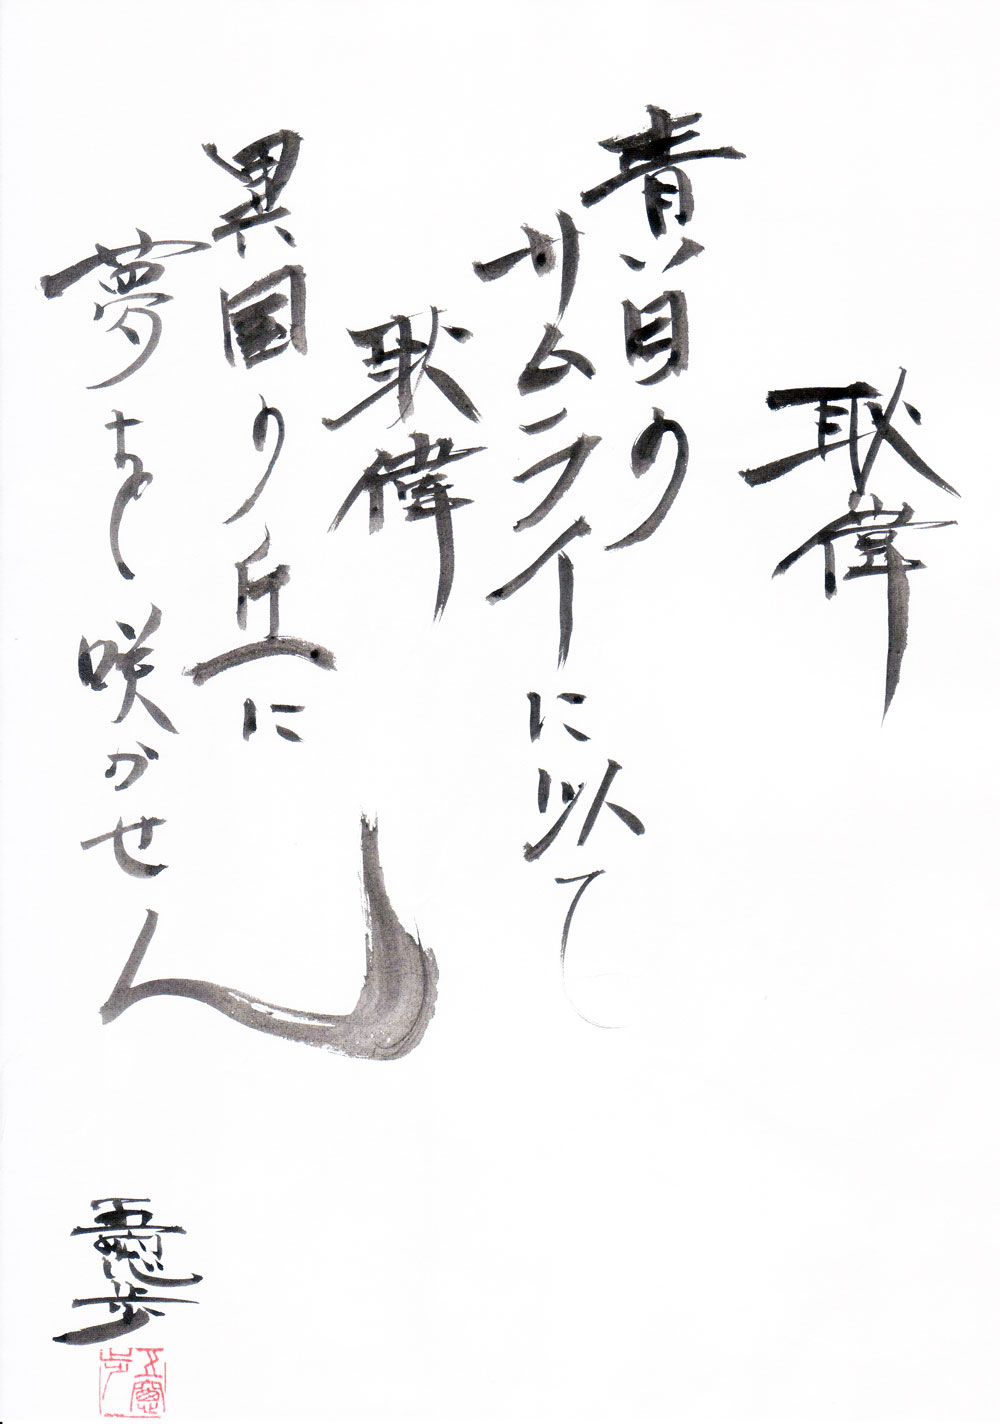 耿偉
青い目の
サムライに似て
耿偉
異国の丘に
夢を咲かせん